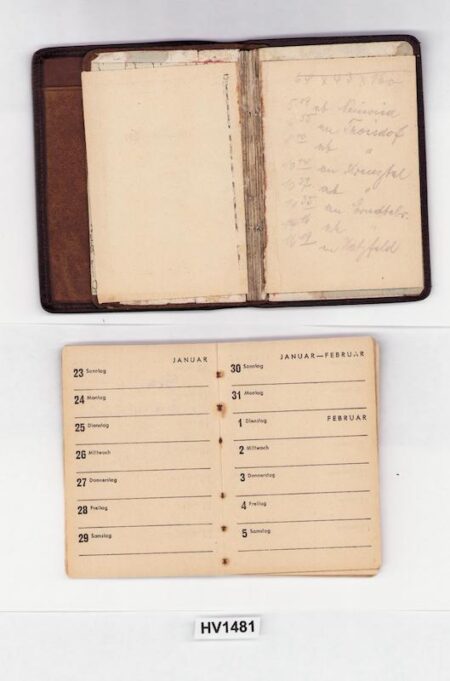 64 x 43 x
ab Neuwied
an Troisdorf
ab "
an Kreuztal
ab "
an
ab "
an Hatzfeld
JANUAR
23 Sonntag
24 Montag
25 Dienstag
26 Mittwoch
27 Donnerstag
28 Freitag
29 Samstag
JANUAR—FEBRUAR
30 Sonntag
31 Montag
FEBRUAR
1 Dienstag
2 Mittwoch
3 Donnerstag
4 Freitag
5 Samstag
HV1481